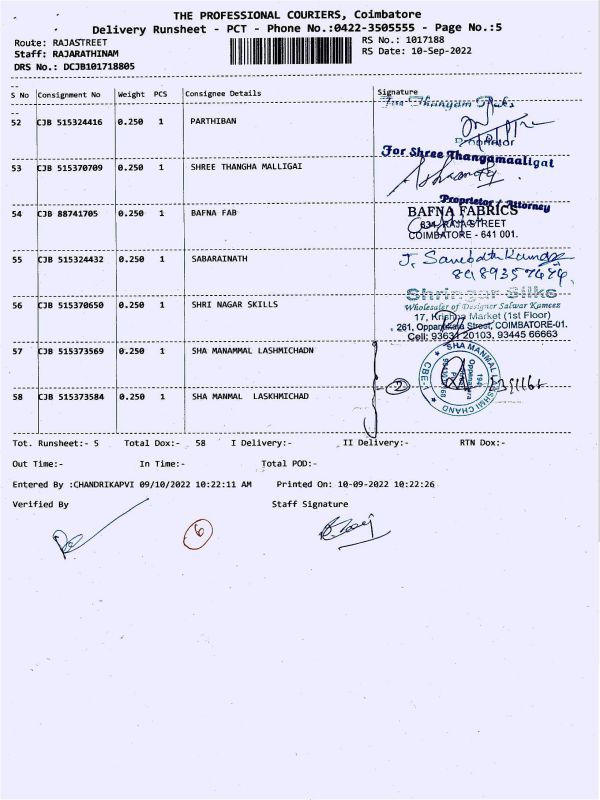 THE PROFESSIONAL COURIERS, Coimbatore
Delivery Runsheet - PCT - Phone No.:0422-3505555 - Page No.:5
Route: RAJASTREET
RS No.: 1017188
Staff: RAJARATHINAM
RS Date: 10-Sep-2022
DRS No.: DCJB101718805
S No Consignment No Weight PCS Consignee Details Signature
For Thangam
52 CJB 515324416 0.250 1 PARTHIBAN
Proprietor
For Shree Thangamaaligai
53 CJB 515370709 0.250 1 SHREE THANGHA MALLIGAI
Proprietor / Attorney
54 CJB 88741705 0.250 1 BAFNA FAB
BAFNA FABRICS
634, RAJA STREET
COIMBATORE - 641 001.
55 CJB 515324432 0.250 1 SABARAINATH
Shringar Silks
56 CJB 515370650 0.250 1 SHRI NAGAR SKILLS
Wholesaler of Designer Salwar Kameez
17, Krishna Market (1st Floor)
261, Oppanakara Street, COIMBATORE-01.
Cell: 93631 20103, 93445 66663
57 CJB 515373569 0.250 1 SHA MANAMMAL LASHMICHADN
SHA MANMAL LAKSHMI CHAND
CBE-1
2
58 CJB 515373584 0.250 1 SHA MANMAL LASKHMICHAD
Tot. Runsheet:- 5 Total Dox:- 58 I Delivery:- II Delivery:- RTN Dox:-
Out Time:- In Time:- Total POD:-
Entered By :CHANDRIKAPVI 09/10/2022 10:22:11 AM Printed On: 10-09-2022 10:22:26
Verified By Staff Signature
6